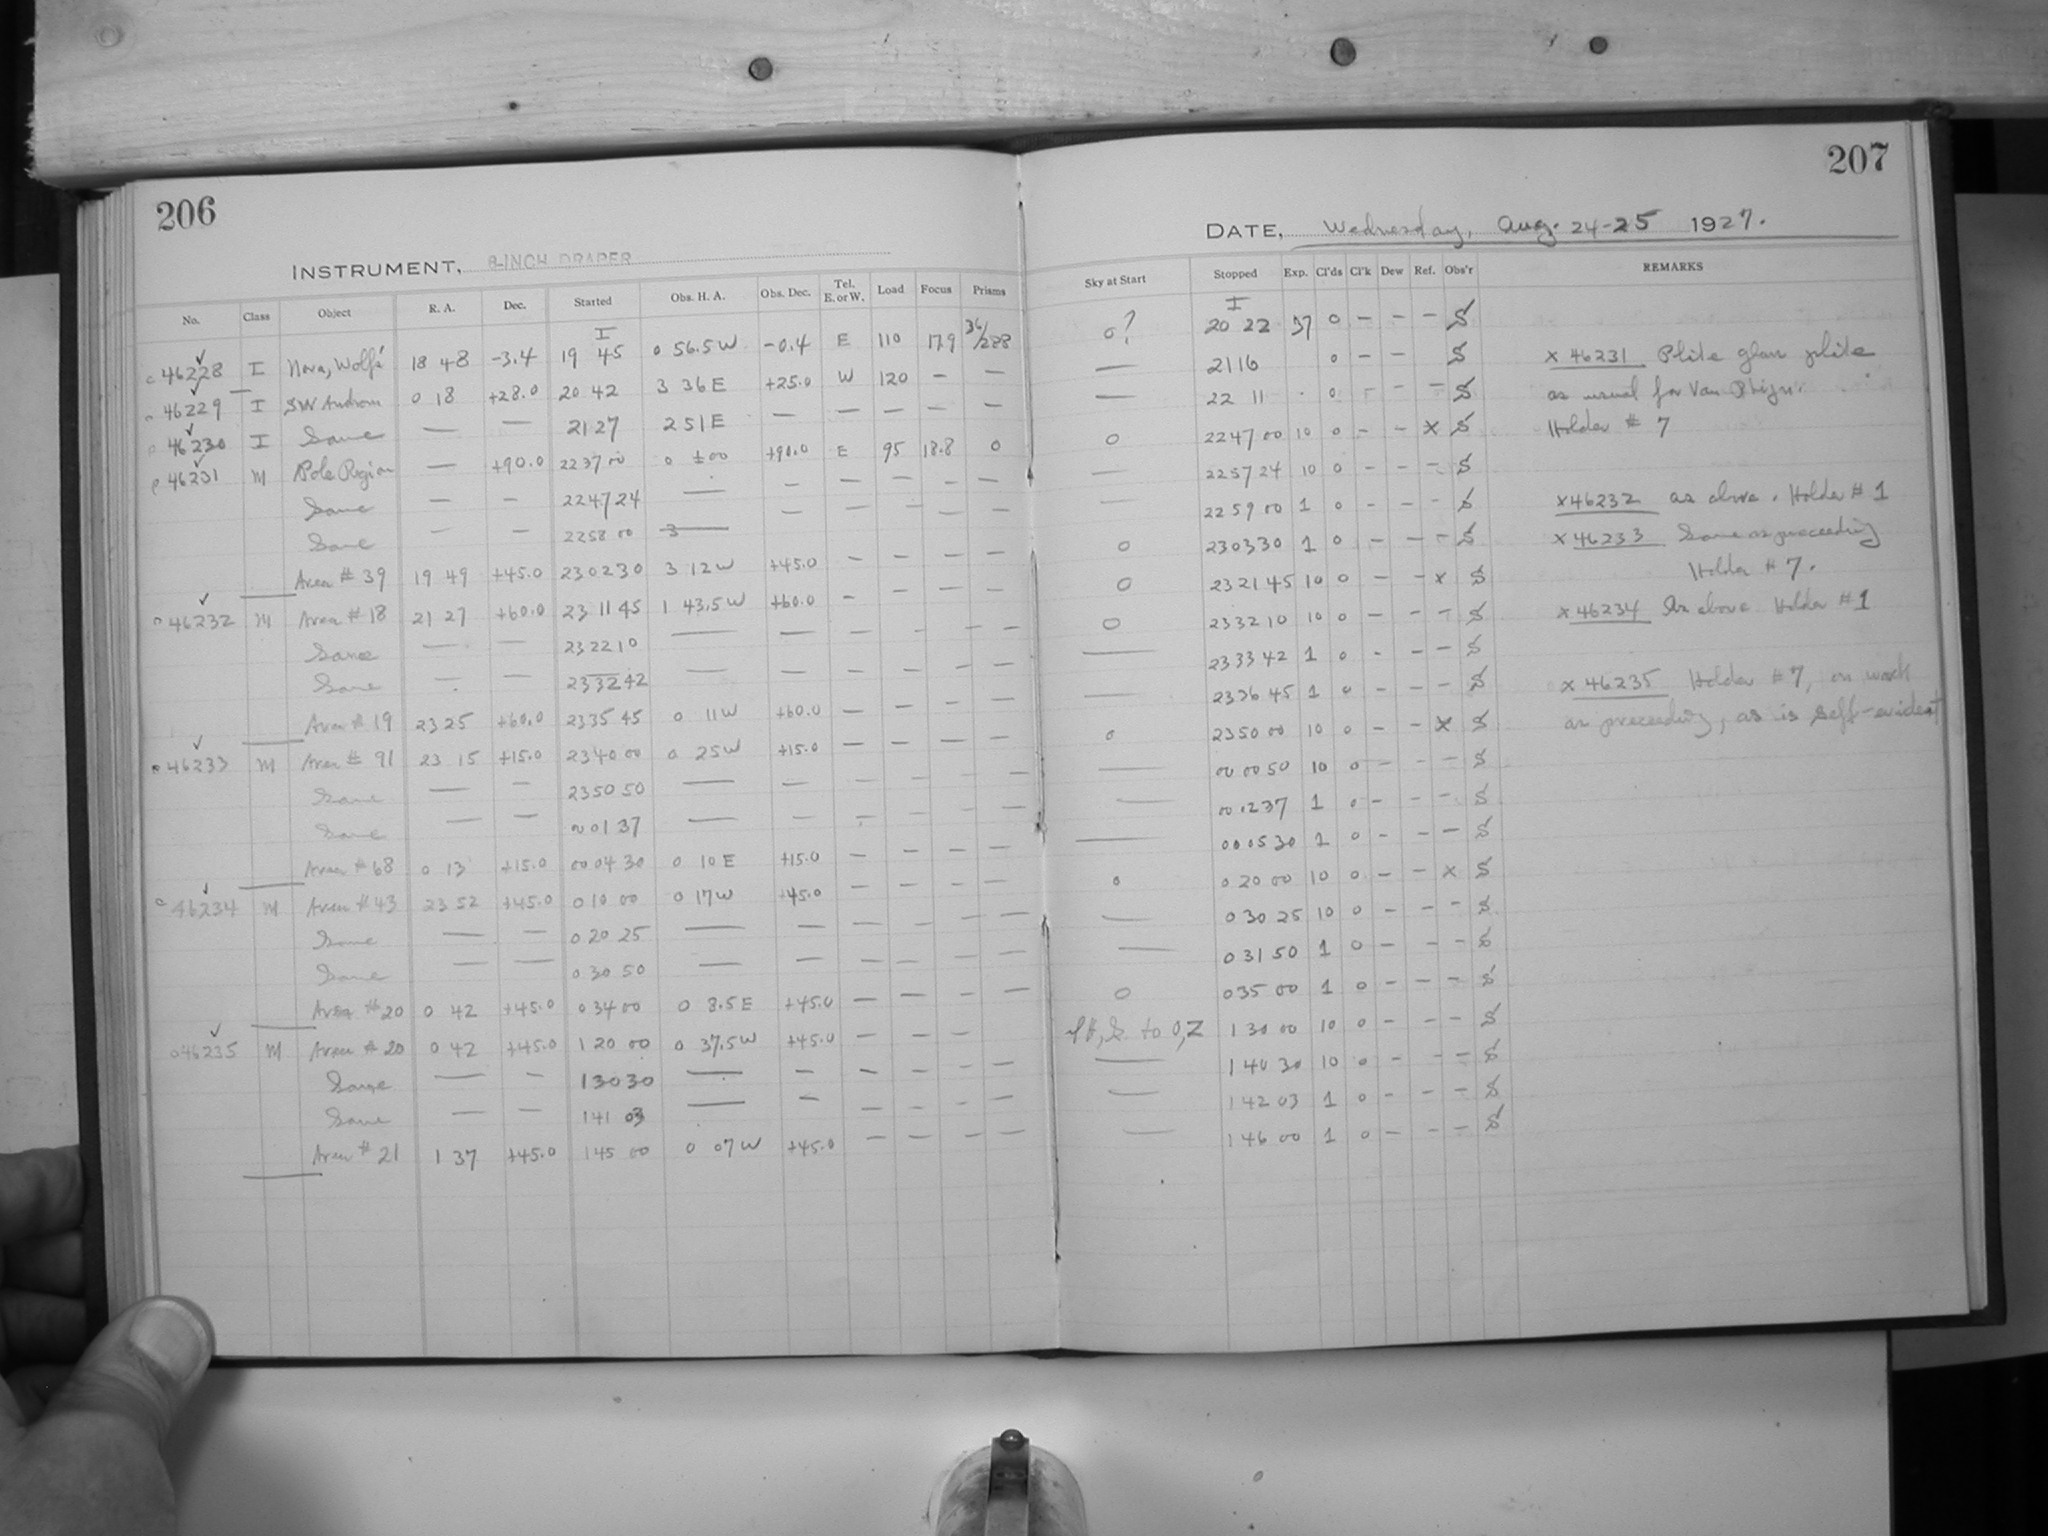 206
INSTRUMENT, 8-INCH DRAPER
No. Class Object R. A. Dec. Started Obs. H. A. Obs. Dec. Tel. E. or W. Load Focus Prisms
I
c 46228 I Nova, Wolf's 18 48 -3.4 19 45 0 56.5 W -0.4 E 110 17.9 36/288
46229 I SW Androm 0 18 +28.0 20 42 3 36 E +25.0 W 120 — —
46230 I Same — — 21 27 2 51 E — — — — —
46231 M Pole Region — +90.0 22 37 00 0 ±00 +90.0 E 95 18.8 0
Same — — 22 47 24 — — — — — —
Same — — 22 58 00 — — — — — —
Area # 39 19 49 +45.0 23 02 30 3 12 W +45.0 — — — —
46232 M Area # 18 21 27 +60.0 23 11 45 1 43.5 W +60.0 — — — —
Same — — 23 22 10 — — — — — —
Same — — 23 32 42 — — — — — —
Area # 19 23 25 +60.0 23 35 45 0 11 W +60.0 — — — —
46233 M Area # 91 23 15 +15.0 23 40 00 0 25 W +15.0 — — — —
Same — — 23 50 50 — — — — — —
Same — — 00 01 37 — — — — — —
Area # 68 0 13 +15.0 00 04 30 0 10 E +15.0 — — — —
c 46234 M Area # 43 23 52 +45.0 0 10 00 0 17 W +45.0 — — — —
Same — — 0 20 25 — — — — — —
Same — — 0 30 50 — — — — — —
Area # 20 0 42 +45.0 0 34 00 0 8.5 E +45.0 — — — —
46235 M Area # 20 0 42 +45.0 1 20 00 0 37.5 W +45.0 — — — —
Same — — 1 30 30 — — — — — —
Same — — 1 41 03 — — — — — —
Area # 21 1 37 +45.0 1 45 00 0 07 W +45.0 — — — —
207
DATE, Wednesday, Aug. 24-25 1927.
Sky at Start Stopped Exp. Cl'ds Cl'k Dew Ref. Obs'r REMARKS
I
0? 20 22 37 0 — — — S
— 21 16 0 — — S x 46231 Plate glass plate
— 22 11 0 — — — S as usual for Van Rhijn.
0 22 47 00 10 0 — — x S Holder # 7
— 22 57 24 10 0 — — — S
— 22 59 00 1 0 — — — S x 46232 as above. Holder # 1
0 23 03 30 1 0 — — — S x 46233 Same as preceeding
0 23 21 45 10 0 — — x S Holder # 7.
0 23 32 10 10 0 — — — S x 46234 As above Holder # 1
— 23 33 42 1 0 — — — S
— 23 36 45 1 0 — — — S x 46235 Holder # 7, on work
0 23 50 00 10 0 — — x S as preceeding, as is self-evident
— 00 00 50 10 0 — — — S
— 00 02 37 1 0 — — — S
— 00 05 30 1 0 — — — S
0 0 20 00 10 0 — — x S
— 0 30 25 10 0 — — — S
— 0 31 50 1 0 — — — S
0 0 35 00 1 0 — — — S
to 0, Z 1 30 00 10 0 — — — S
— 1 40 30 10 0 — — — S
— 1 42 03 1 0 — — — S
— 1 46 00 1 0 — — — S